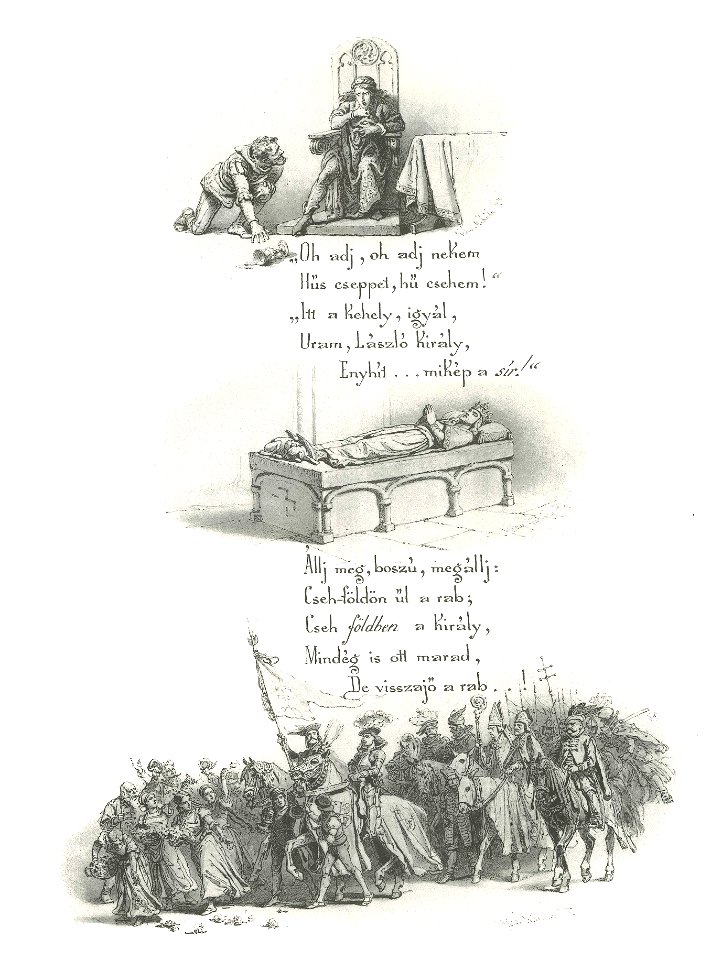 „Oh adj, oh adj nekem
Hüs cseppet, hü csehem!“
„Itt a kehely, igyál,
Uram, László király,
Enyhít . . . mikép a sír!“
Állj meg, boszú, megállj:
Cseh-földön ül a rab;
Cseh földben a király,
Mindég is ott marad,
De visszajö a rab . . . !